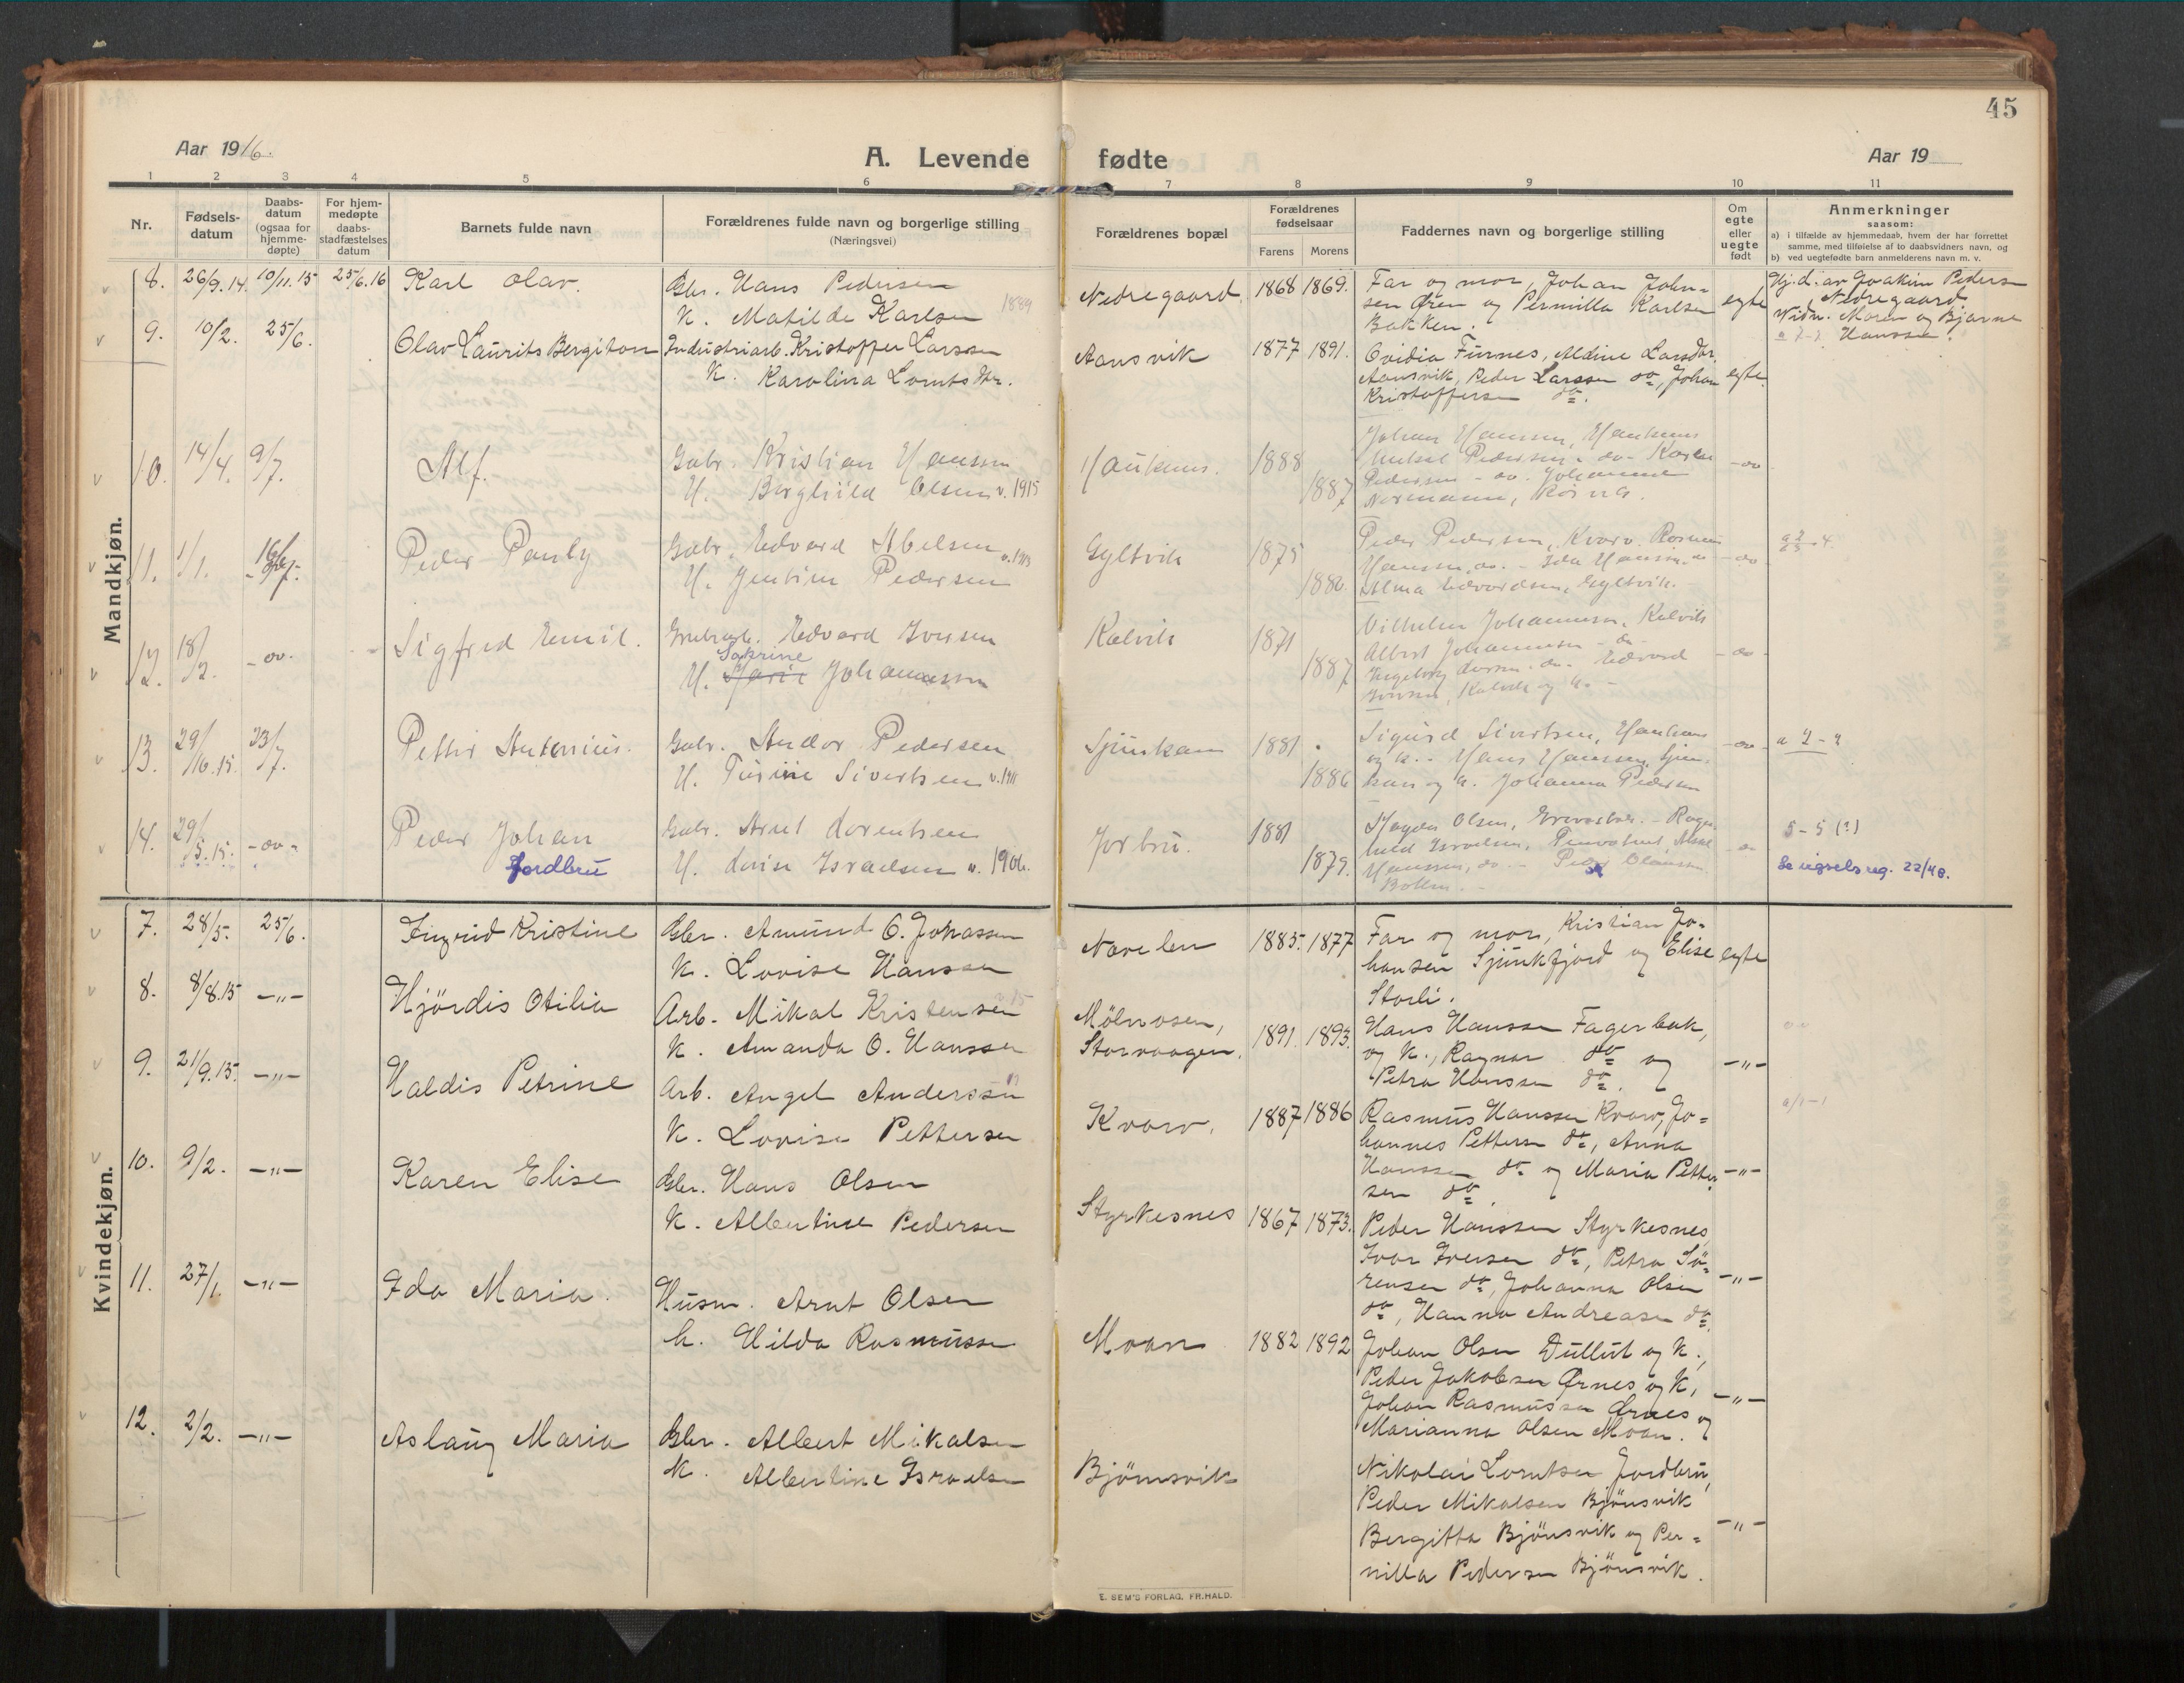 45
Aar 1916.
A. Levende fødte
Aar 19
1 2 3 4 5 6 7 8 9 10 11
Nr.
Fødsels-
datum
Daabs-
datum
(ogsaa for
hjemme-
døpte)
For hjem-
medøpte
daabs-
stadfæstelses
datum
Barnets fulde navn
Forældrenes fulde navn og borgerlige stilling
(Næringsvei)
Forældrenes bopæl
Forældrenes
fødselsaar
Farens Morens
Faddernes navn og borgerlige stilling
Om
egte
eller
uegte
født
Anmerkninger
saasom:
a) i tilfælde av hjemmedaab, hvem der har forrettet
samme, med tilføielse af to daabsvidners navn, og
b) ved uegtefødte barn anmelderens navn m. v.
Mandkjøn.
8. 26/9.14. 10/11.15 25/6.16 Karl Olav.
Gbr. Hans Pedersen
K. Matilde Karlsen 1889
Nedregaard 1868 1869.
Far og mor, Johan John-
sen Øren og Pernilla Karlsen
Bakken.
egte
Hj.d. av Joakim Peders
Nedregaard
Widn. Maren og Bjarne
Hanssen.
9. 10/2. 25/6. Olav Laurits Bergiton
Industriarb. Kristoffer Larssen
K. Karolina Lorntsdtr.
Aansvik 1877 1891.
Ovidia Furnes, Aldine Larsdtr.
Aansvik, Peder Larssen do, Johan
Kristoffersen do.
egte.
10. 14/4. 9/7. Alf.
Gabr. Kristian Hanssen
H. Borghild Olsen v. 1915
Hauknes. 1888
1887
Johan Hanssen, Hauknes
Mikal Pedersen - do - Karen
Pedersen - do. Johanne
Normann, Røsvik.
- do -
11. 1/1. 16/7. Peder Pauly
Gabr. Edvard Abelsen v. 1913
H. Jensine Pedersen
Gyltvik 1875
1880.
Peder Pedersen, Kvarv. Rasmus
Hanssen, do. - Ida Hanssen, do
Alma Edvardsen, Gyltvik.
- do
12. 18/2. - do. Sigfred Emil.
Grubearb. Edvard Iversen
Sakrine
H. Marie Johannessen
Kalvik 1871
1887
Vilhelm Johannessen, Kalvik
Albert Johannessen - do -
Ingeborg Larsen - do - Edvard
Iversen, Kalvik og h. -
- do -
13. 29/10.15. 23/7. Petter Antonius.
Gabr. Andor Pedersen
H. Tusine Sivertsen v. 1911
Sjunkan 1881
1886
Sigurd Sivertsen, Hauknes
og h. - Hans Hanssen, Sjun-
kan og h. Johanna Pedersen
- do -
14. 29/5.15. - do - Peder Johan
Jordbru
Gabr. Arnt Lorentsen
H. Lovise Israelsen v. 1906.
Jorbru. 1881
1879.
Hagda Olsen, - Ragn-
hild Israelsen,
Hanssen, do - Peder Olaussen
Botten. -
5-5 (?)
Se vigselsreg. 22/48.
Kvindekjøn.
7. 28/5. 25/6. Ingrid Kristine
Gbr. Amund O. Johassen
K. Lovise Hanssen
Nevelen 1885. 1877
Far og mor, Kristian Jo-
hansen Sjunkfjord og Elise
Storli.
egte
8. 8/8.15 -"- Hjördis Otilia
Arb. Mikal Kristensen
K. Amanda O. Hanssen
Mölnosen,
Storvaagen. 1891. 1893.
Hans Hanssen Fagerbak,
og K., Ragnar do og
Petra Hanssen do.
-"-
9. 21/9.15. -"- Haldis Petrine
Arb. Angel Anderssen
K. Lovise Pettersen
Kvarv, 1887 1886
Rasmus Hanssen Kvarv, Jo-
hannes Pettersen do, Anna
Hanssen do og Maria Petter-
sen do.
-"-
10. 9/2. -"- Karen Elise
Gbr. Hans Olsen
K. Albertine Pedersen
Styrkesnes 1867 1873.
Peder Hanssen Styrkesnes,
Ivar Iversen do, Petra Sö-
rensen do, Johanna Olsen
do, Hanna Andreasen do.
-"-
11. 27/1. -"- Ida Maria.
Husm. Arnt Olsen
h. Hilda Rasmussen
Moan 1882 1892
Johan Olsen Dullut og K.,
Peder Jakobsen Ørnes og K,
Johan Rasmussen Ørnes og
Marianna Olsen Moan.
-"-
12. 2/2. -"- Aslaug Maria
Gbr. Albert Mikalsen
K. Albertine Israelsen
Björnsvik
Nikolai Lorntsen Jordbru,
Peder Mikalsen Bjönsvik
Bergitta Bjönsvik og Per-
nilla Pedersen Bjönsvik.
-"-
E. SEM'S FORLAG, FR.HALD.